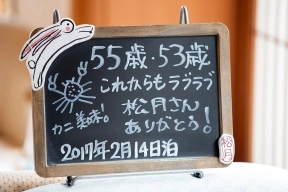 55歳・53歳
これからもラブラブ
カニ美味!
松月さん
ありがとう!
2017年2月14日泊
松月